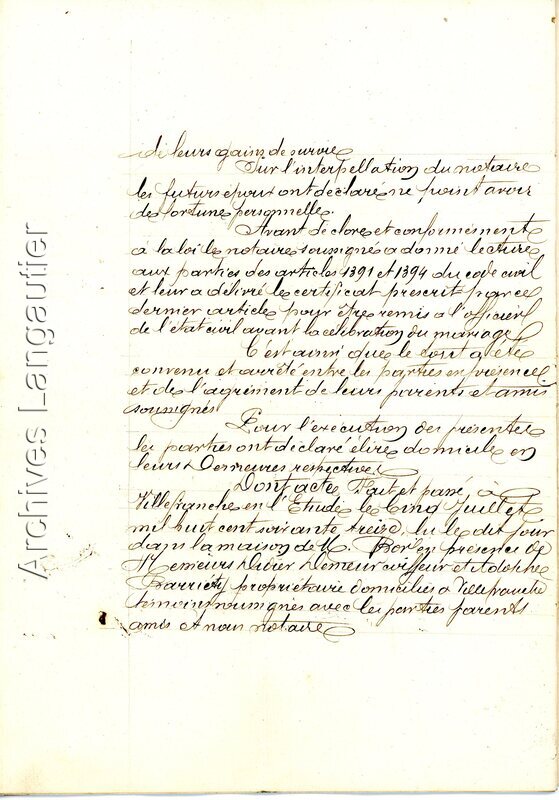 de leurs gains de survie
Sur l'interpellation du notaire
les futurs epoux ont déclaré ne point avoir
de fortune personnelle.
Avant de clore et conformément
à la loi le notaire soussigné a donné lecture
aux parties des articles 1391 et 1394 du code civil
et leur a délivré le certificat prescrit par ce
dernier article pour être remis à l'officier
de l'état civil avant la célébration du mariage
C'est ainsi que le tout a été
convenu et arrêté entre les parties en présence
et de l'agrément de leurs parents et amis
soussignés
Pour l'exécution des présentes
les parties ont déclaré élire domicile en
leurs Demeures respectives
Dont acte Fait et passé à
Villefranche en l'Etude le Cinq Juillet
mil huit cent soixante treize, lu le dit jour
dans la maison de M. en présence de
Messieurs coiffeur et Adolphe
propriétaire domiciliés à Villefranche
témoins soussignés avec les parties parents
amis et nous notaire
Archives Langautier